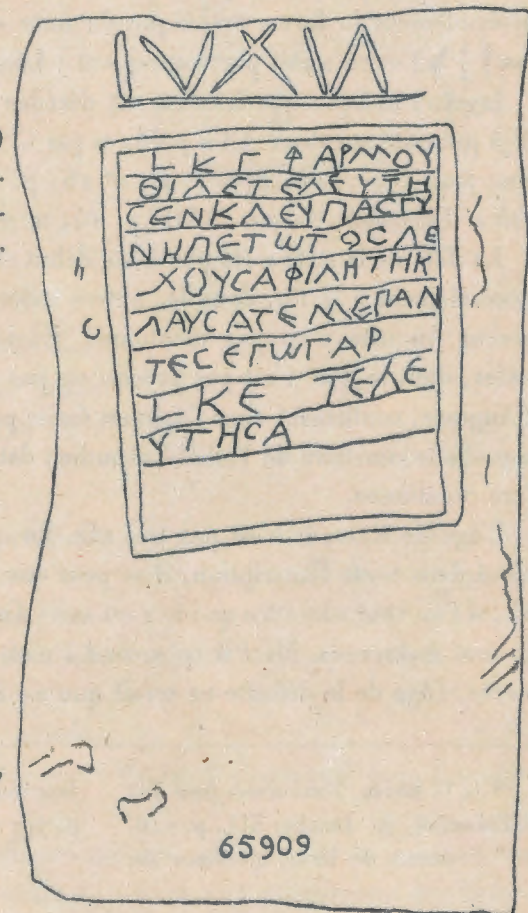 IVXIN
L Κ Γ ΦΑΡΜΟΥ
ΘΙΛΕΤΕΛΕΥΤΗ
CΕΝΚΛΕΥΠΑCΓΥ
ΝΗΠΕΤωΤΟCΛΕ
ΧΟΥCΑΦΙΛΗΤΗΚ
ΛΑΥCΑΤΕΜΕΠΑΝ
ΤΕCΕΓωΓΑΡ
L ΚΕ ΤΕΛΕ
ΥΤΗCΑ
65909